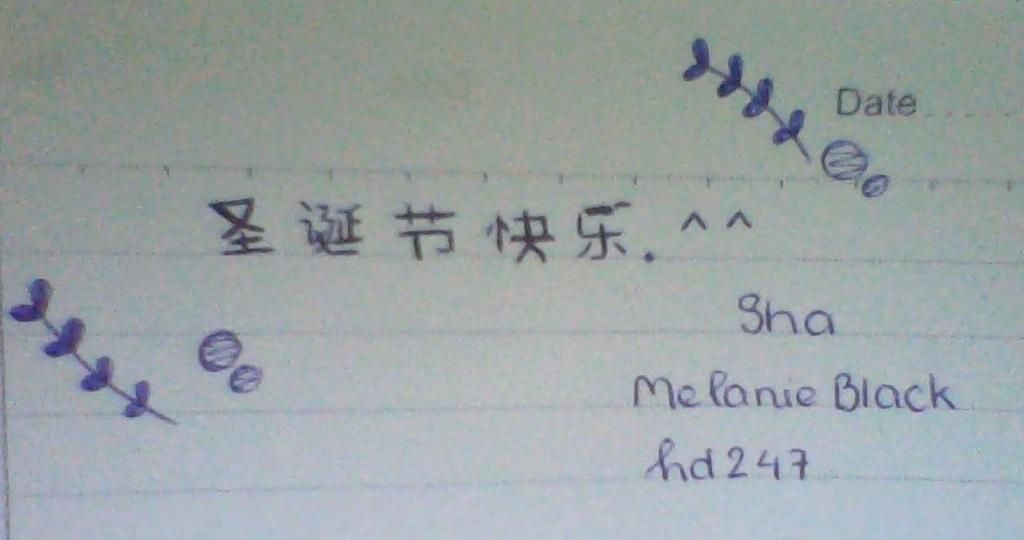 Date
圣诞节快乐. ^ ^
Sha
Melanie Black
hd247